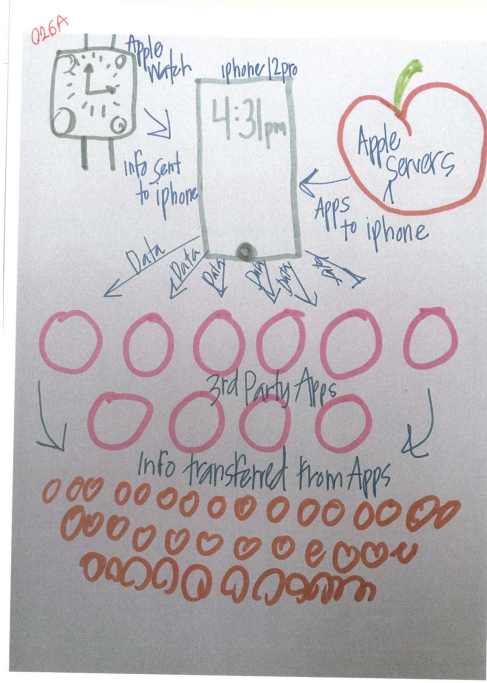 026A
Apple
Watch
iphone 12 pro
4:31pm
Apple
Servers
Info sent
to iphone
Apps
to iphone
Data
Data
Data
Data
Data
Data
3rd Party Apps
Info transferred from Apps